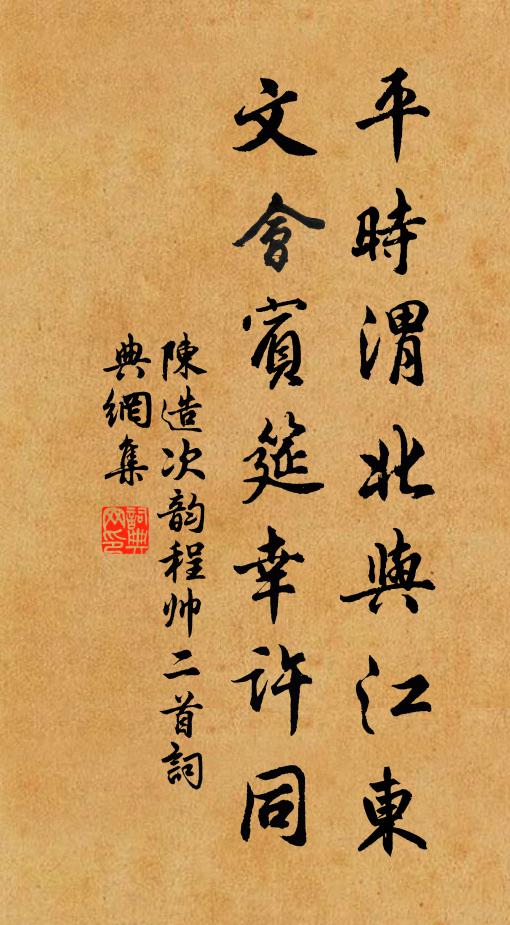 平時渭北與江東
文會賓筵幸許同
陳造次韵程帅二首詞
典網集
詞典
网印